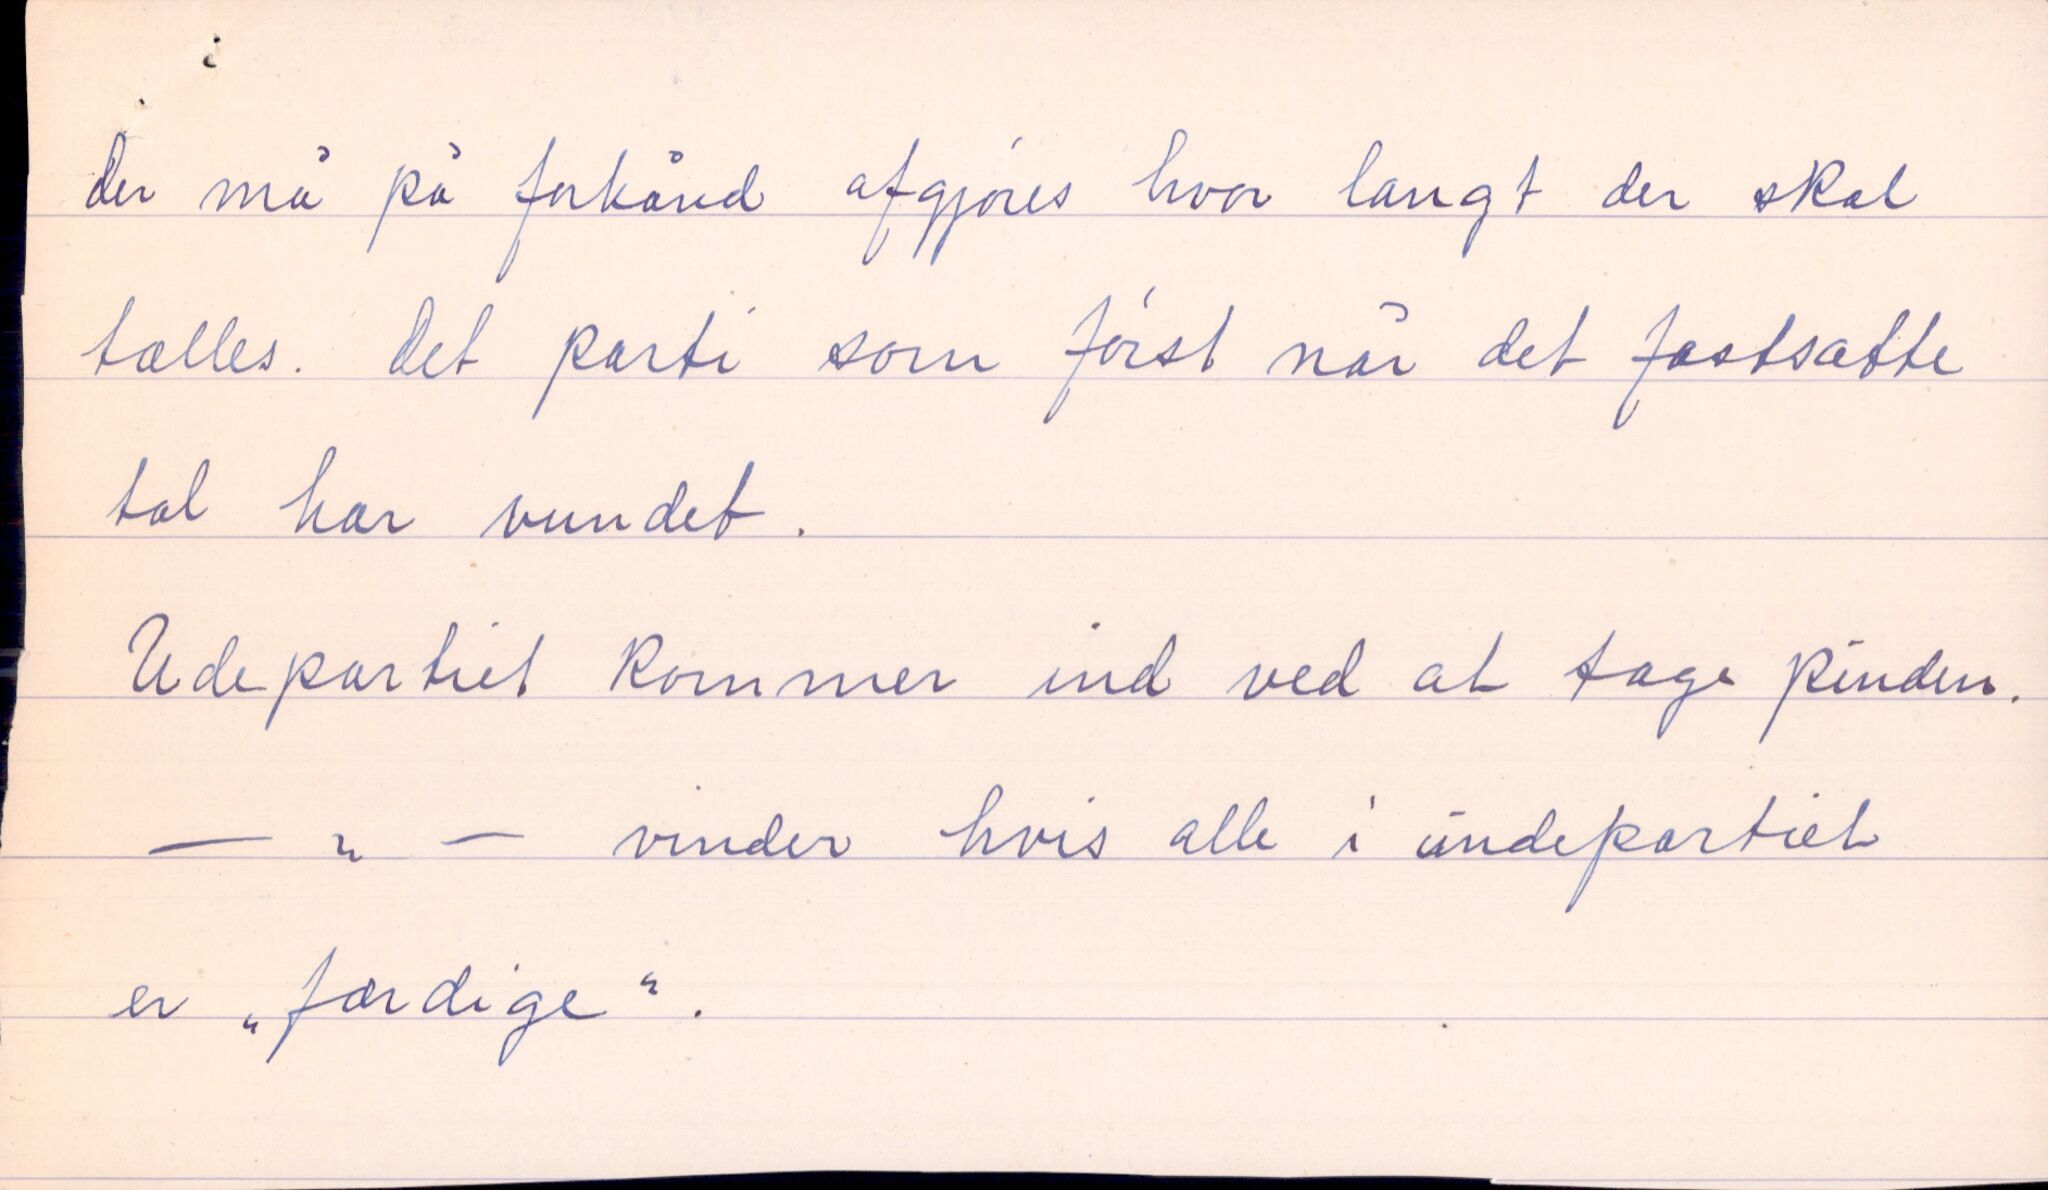 Der må på forhånd afgjóres hvor langt der skal
tælles. Det parti som fórst når det fastsatte
tal har vundet.
Udepartiet kommer ind ved at tage pinden.
— " — vinder hvis alle i indepartiet
er „færdige“.